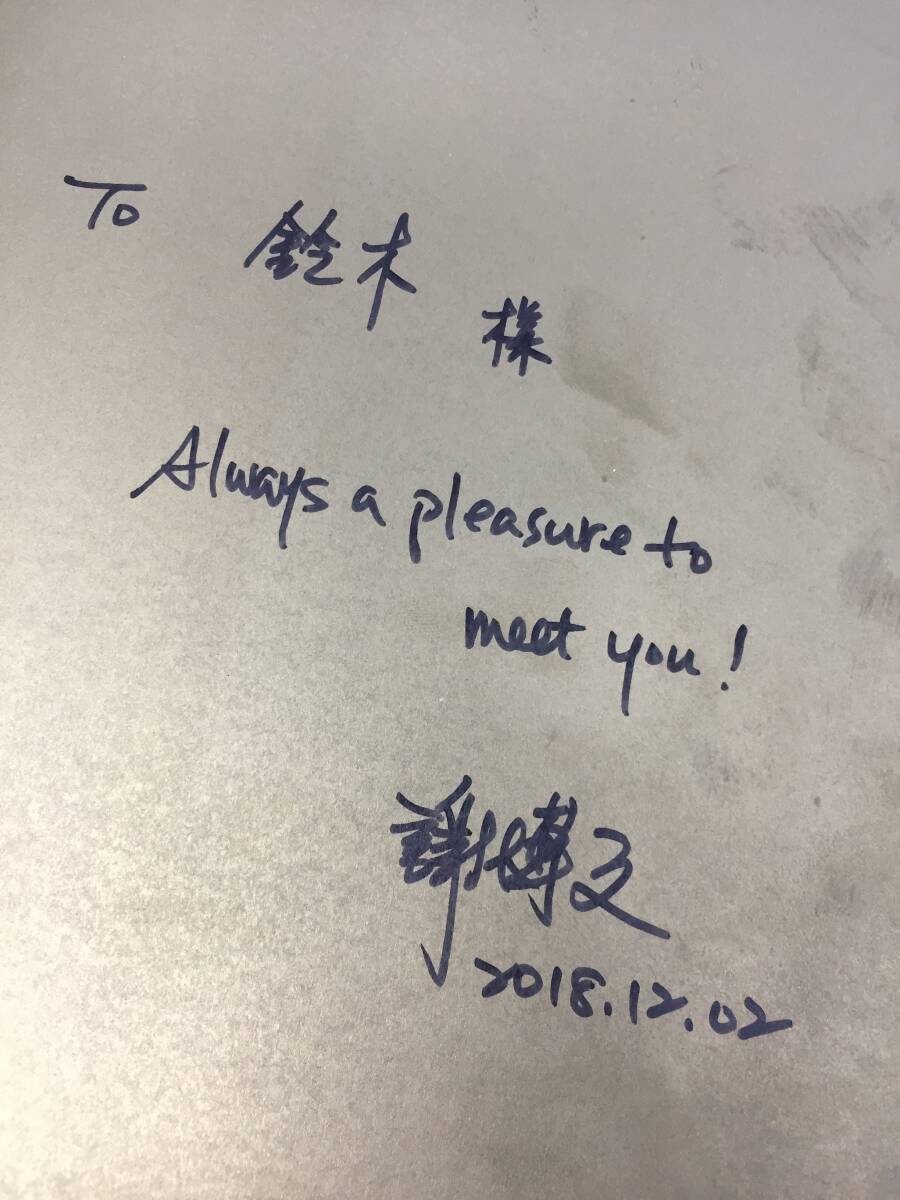 To 鈴木 様
Always a pleasure to
meet you!
謝博文
2018.12.02